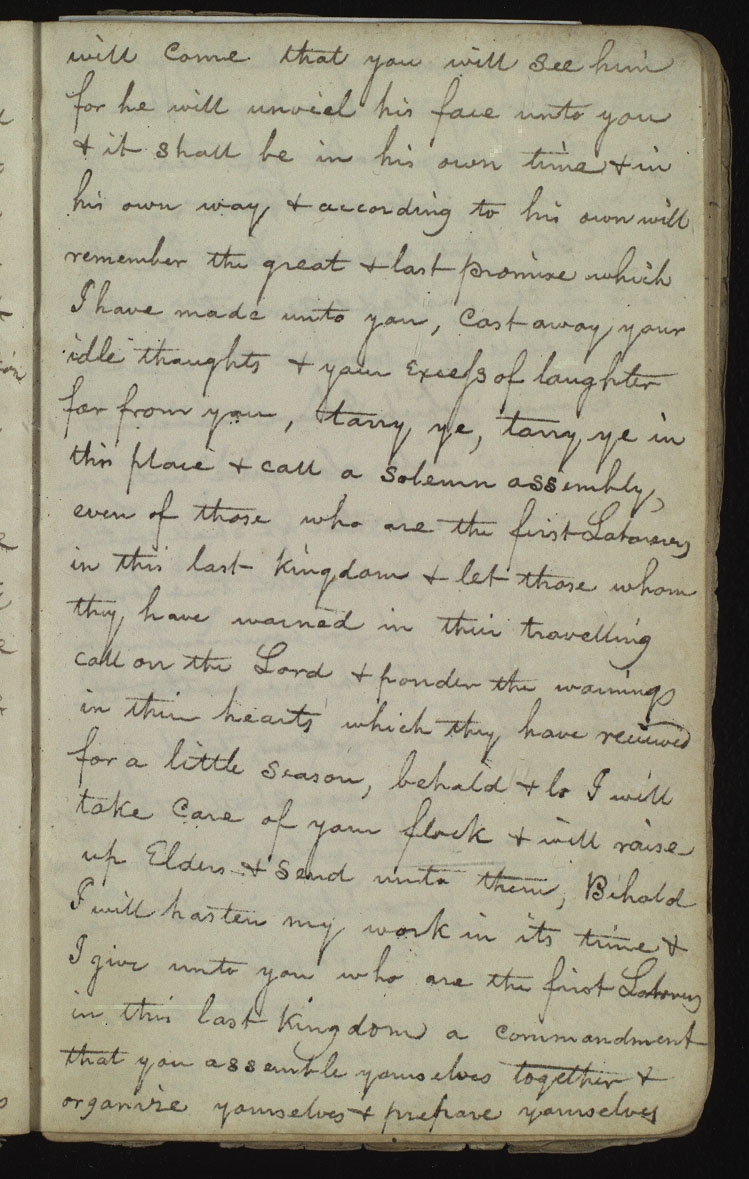 will come that you will see him
for he will unviel his face unto you
& it shall be in his own time & in
his own way, & according to his own will
remember the great & last promise which
I have made unto you, Cast away, your
idle thoughts & your Excess of laughter
far from you, tarry, ye, tarry, ye in
this place & call a Solemn assembly,
even of those who are the first Laborers
in this last kingdom & let those whom
they, have warned in their travelling
call on the Lord & ponder the warnings
in their hearts which they have received
for a little season, behold & lo I will
take Care of your flock & will raise
up Elders & Send unto them, Behold
I will hasten my work in its time &
I give unto you who are the first Laborers
in this last kingdom a commandment
that you assemble yourselves together &
organize yourselves & prepare yourselves